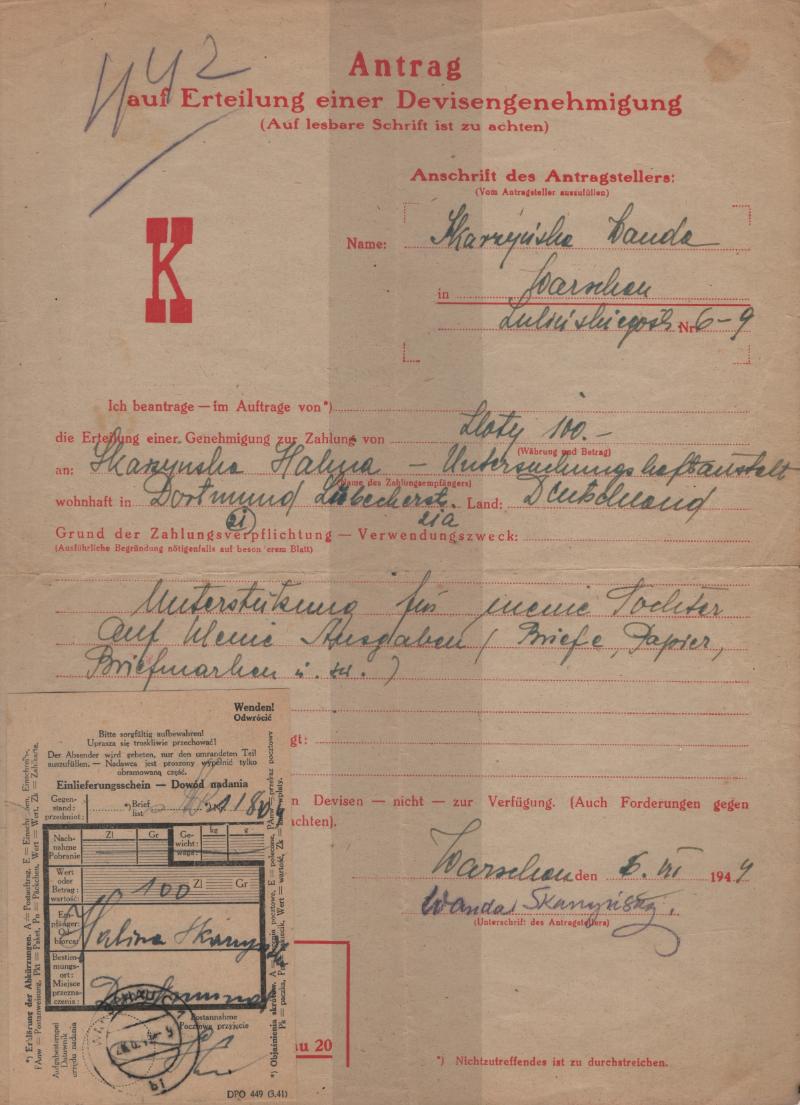 442
Antrag
auf Erteilung einer Devisengenehmigung
(Auf lesbare Schrift ist zu achten)
Anschrift des Antragstellers:
(Vom Antragsteller auszufüllen)
K
Name: Skarzyńska Wanda
in Warschau
Nr. 6-9
Ich beantrage — im Auftrage von*)
die Erteilung einer Genehmigung zur Zahlung von Zloty 100.-
(Währung und Betrag)
an: Skarzynska Halina - Untersuchungshaftanstalt
(Name des Zahlungsempfängers)
wohnhaft in Dortmund Lübecherstr. Land: Deutschland
21 21a
Grund der Zahlungsverpflichtung — Verwendungszweck:
(Ausführliche Begründung nötigenfalls auf beson erem Blatt)
Unterstützung für meine Tochter
auf kleine Ausgaben (Briefe, Papier,
Briefmarken u. sw.)
gt:
n Devisen — nicht — zur Verfügung. (Auch Forderungen gegen
achten).
Warschau den 5. VII 1944
Wanda Skarzyńska.
(Unterschrift des Antragstellers)
au 20
*) Nichtzutreffendes ist zu durchstreichen.
Wenden!
Odwrócić
Bitte sorgfältig aufbewahren!
Uprasza się troskliwie przechować!
Der Absender wird gebeten, nur den umrandeten Teil
auszufüllen. — Nadawca jest proszony wypełnić tylko
obramowaną część.
Einlieferungsschein — Dowód nadania
Gegen-
stand:
przedmiot:
*) Brief
list
Nach-
nahme
Pobranie
Zl Gr
Ge-
wicht:
waga:
kg g
Wert
oder
Betrag:
wartość:
100 Zl Gr
Em-
pfänger:
Od-
biorca:
Halina Skarzyńska
Bestim-
mungs-
ort:
Miejsce
przezna-
czenia:
Dortmund
Postannahme
Pocztowe przyjęcie
Aufgabestempel
Datownik
urzędu nadania
b1
DPO 449 (3.41)
*) Erklärung der Abkürzungen. A = Postauftrag, E = Einschreiben, Einschrb.,
PAnw = Postanweisung, Pkt = Paket, Pn = Päckchen, Wert = Wert, Zk = Zahlkarte.